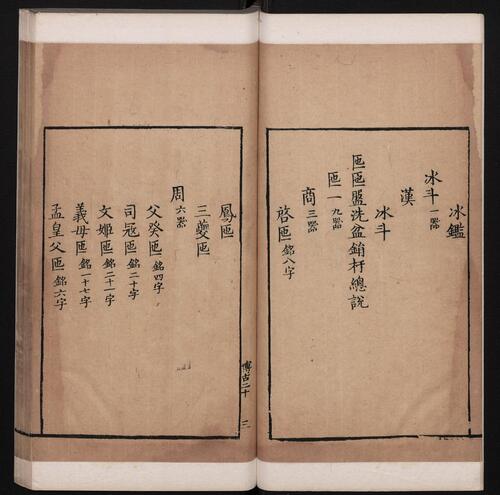 冰鑑
冰斗一器
漢
冰斗
匜匜盤洗盆鋗杅總說
匜一九器
商三器
啓匜銘八字
鳳匜
三夔匜
周六器
父癸匜銘四字
司寇匜銘二十字
文姬匜銘二十一字
義母匜銘一十七字
孟皇父匜銘六字
博古二十 三